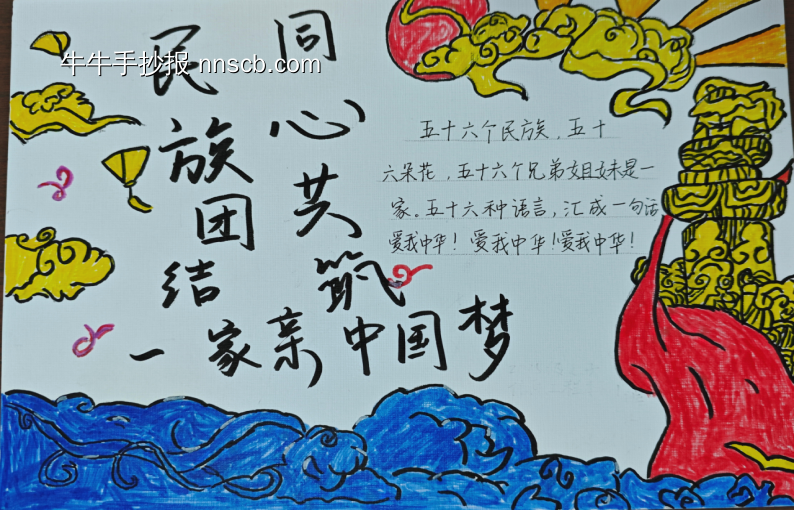 牛牛手抄报 nnscb.com
民族团结一家亲
同心共筑中国梦
五十六个民族，五十
六朵花，五十六个兄弟姐妹是一
家。五十六种语言，汇成一句话
爱我中华！爱我中华！爱我中华！